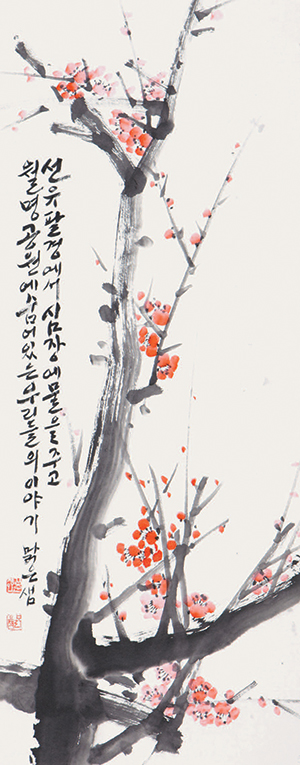 선유팔경에서 심장에 물을 주고
월명공원에 숨어있는 우리들의 이야기 맑은샘